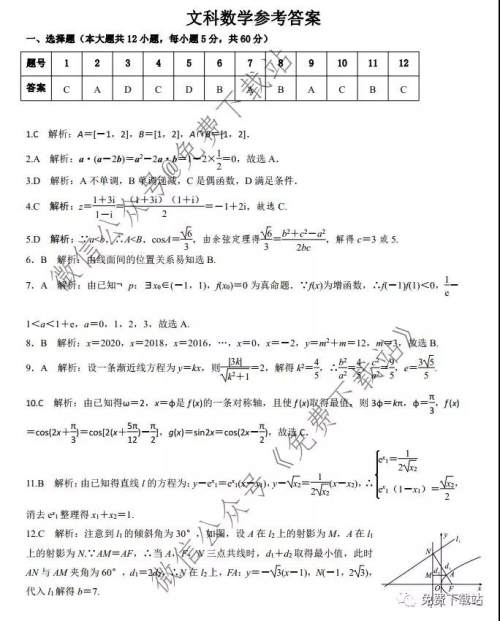 文科数学参考答案
一、选择题（本大题共12小题，每小题5分，共60分）
题号 1 2 3 4 5 6 7 8 9 10 11 12
答案 C A D C D B A B A C B C
1.C 解析：A=[-1，2]，B=[1，2]，A∩B=[1，2].
2.A 解析：a·(a-2b)=a²-2a·b=1-2×1/2=0，故选A.
3.D 解析：A不单调，B单调递减，C是偶函数，D满足条件.
4.C 解析：z=(1+3i)/(1-i)=(1+3i)(1+i)/2=-1+2i，故选C.
5.D 解析：∵a<b，∴A<B，cosA=√6/3，由余弦定理得√6/3=(b²+c²-a²)/2bc，解得c=3或5.
6．B 解析：由线面间的位置关系易知选B.
7．A 解析：由已知¬p：∃x₀∈(-1，1)，f(x₀)=0为真命题．∵f(x)为增函数，∴f(-1)f(1)<0，1/e-
1<a<1+e，a=0，1，2，3，故选A.
8．B 解析：x=2020，x=2018，x=2016，…，x=0，x=-2，y=m²+m=12，m=3，故选B.
9．A 解析：设一条渐近线方程为y=kx，则|3k|/√(k²+1)=2，解得k²=4/5，∴b²/a²=4/5，c²/a²=9/5，e=3√5/5.
10.C 解析：由已知得ω=2，x=φ是f(x)的一条对称轴，且使f(x)取得最值，则3φ=kπ，φ=π/3，f(x)
=cos(2x+π/3)=cos[2(x+5π/12)-π/2]，g(x)=sin2x=cos(2x-π/2)，故选C.
11.B 解析：由已知得直线l的方程为：y-eˣ¹=eˣ¹(x-x₁)，y-√x₂=1/(2√x₂)(x-x₂)，∴{eˣ¹=1/(2√x₂) eˣ¹(1-x₁)=√x₂/2，
消去eˣ¹整理得x₁+x₂=1.
12.C 解析：注意到l₁的倾斜角为30°，如图，设A在l₂上的射影为M，A在l₁
上的射影为N.∵AM=AF，∴当A，F，N三点共线时，d₁+d₂取得最小值，此时
AN与AM夹角为60°，d₁=2d₂，∴N在l₂上，FA：y=-√3(x-1)，N(-1，2√3)，
代入l₁解得b=7.
y
l₁
N
M
A
O
F
x
微信公众号@免费下载站
微信公众号《免费下载站》
免费下载站